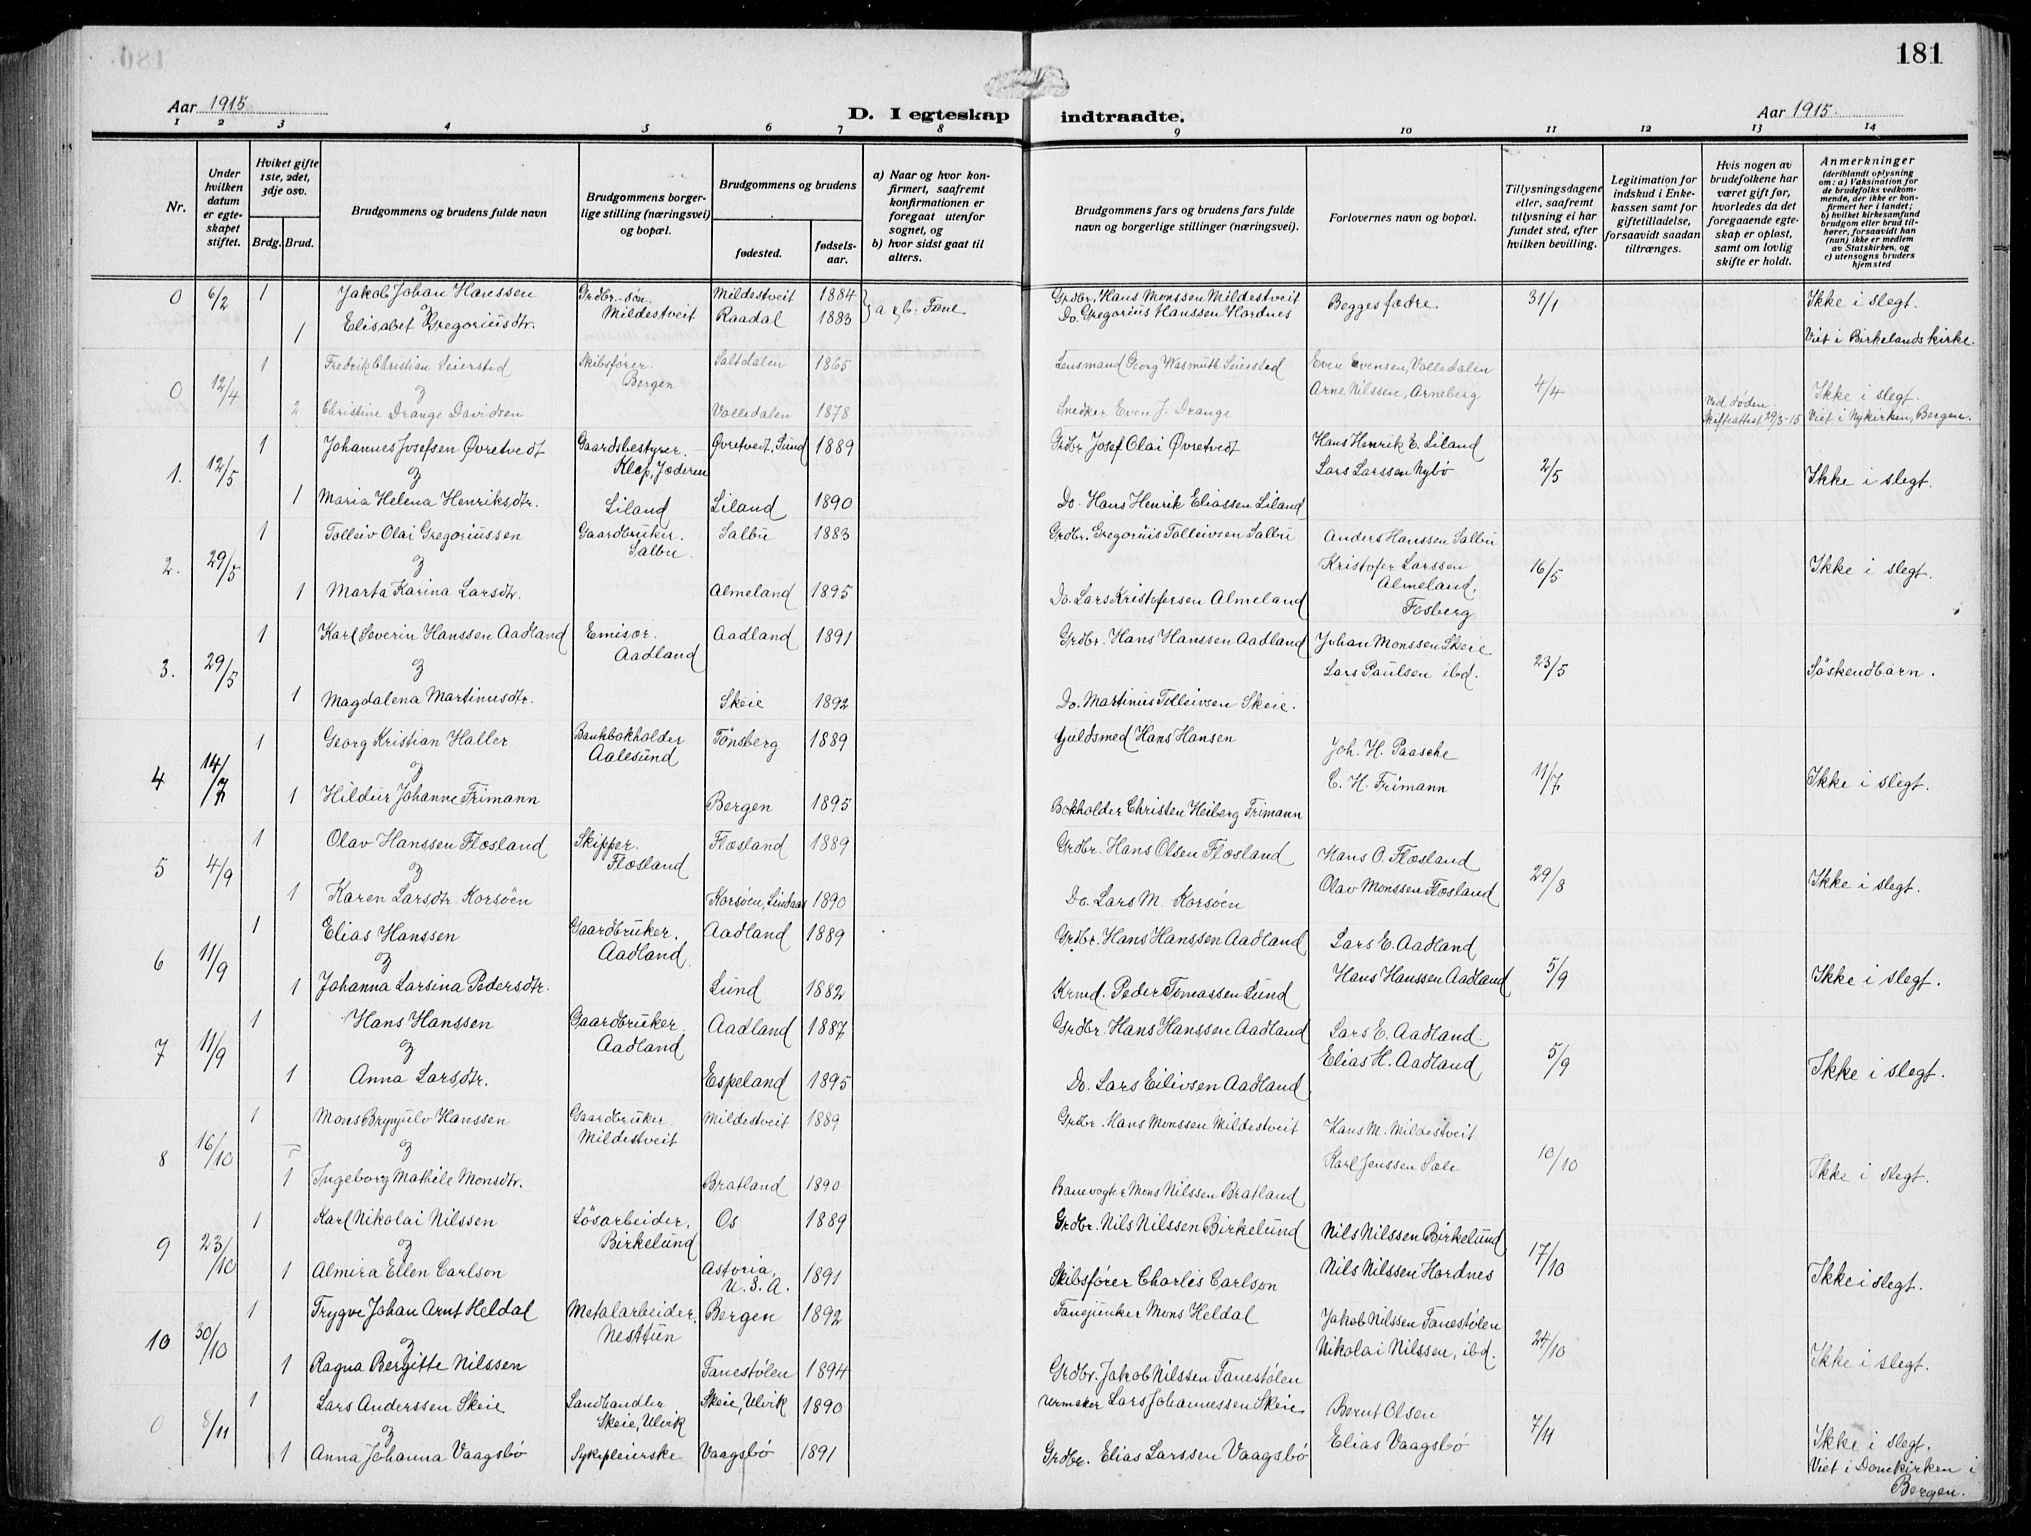 181
Aar 1915
D. I egteskap indtraadte.
Aar 1915.
1 2 3 4 5 6 7 8 9 10 11 12 13 14
Nr.
Under hvilken datum er egteskapet stiftet.
Hvilket gifte 1ste, 2det, 3dje osv.
Brdg. Brud.
Brudgommens og brudens fulde navn
Brudgommens borgerlige stilling (næringsvei) og bopæl.
Brudgommens og brudens
fødested.
fødselsaar.
a) Naar og hvor konfirmert, saafremt konfirmationen er foregaat utenfor sognet, og
b) hvor sidst gaat til alters.
Brudgommens fars og brudens fars fulde navn og borgerlige stillinger (næringsvei).
Forlovernes navn og bopæl.
Tillysningsdagene eller, saafremt tillysning ei har fundet sted, efter hvilken bevilling.
Legitimation for indskud i Enkekassen samt for giftetilladelse, forsaavidt saadan tiltrænges.
Hvis nogen av brudefolkene har været gift før, hvorledes da det foregaaende egteskap er opløst, samt om lovlig skifte er holdt.
Anmerkninger
(deriblandt oplysning om: a) Vaksination for de brudefolks vedkommende, der ikke er konfirmert her i landet;
b) hvilket kirkesamfund brudgom eller brud tilhører, forsaavidt han (hun) ikke er medlem av Statskirken, og
c) utensogns bruders hjemsted
0 6/2 1 Jakob Johan Hanssen Grdbr.-søn. Mildestveit Mildestveit 1884 a og b. Fane Grdbr. Hans Monssen Mildestveit Begges fædre 31/1 Ikke i slegt.
og
1 Elisabet Gregoriusdtr. Raadal 1883 Do. Gregorius Hanssen Hordnes Viet i Birkelands kirke.
0 12/4 1 Fredrik Christian Seiersted Skibsfører. Bergen Saltdalen 1865 Lensmand Georg Wasmuth Seiersted Even Evensen, Volledalen 4/4 Ikke i slegt.
og
2 Christine Drange Davidsen Volledalen 1878 Snedker Even J. Drange Arne Nilssen, Arneberg Ved døden. Skifteattest 29/3-15 Viet i Nykirken, Bergen.
1. 12/5 1 Johannes Josefsen Øvretvedt Gaardsbestyrer. Klep, Jæderen Øvretveit, Sund 1889 Grdbr. Josef Olai Øvretvedt Hans Henrik E. Liland 2/5 Ikke i slegt.
og
1 Maria Helena Henriksdtr. Liland Liland 1890 Do. Hans Henrik Eliassen Liland Lars Larssen Nybø
2. 29/5 1 Tolleiv Olai Gregoriussen Gaardbruker. Salbu. Salbu 1883 Grdbr. Gregorius Tolleivsen Salbu Anders Hanssen Salbu 16/5 Ikke i slegt.
og
1 Marta Karina Larsdtr. Almeland 1895 Do. Lars Kristofersen Almeland Kristofer Larssen Almeland. Fosberg
3. 29/5 1 Karl Severin Hanssen Aadland Emisær. Aadland Aadland 1891 Grdbr. Hans Hanssen Aadland Johan Monssen Skeie 23/5 Søskendbarn.
og
1 Magdalena Martinusdtr. Skeie 1892 Do. Martinus Tolleivsen Skeie. Lars Paulsen ibd.
4 14/7 1 Georg Kristian Haller Bankbokholder Aalesund Tønsberg 1889 Guldsmed Hans Hansen Joh. H. Paasche 11/7 Ikke i slegt.
og
1 Hildur Johanne Frimann Bergen 1895 Bokholder Christen Heiberg Frimann C. H. Frimann
5 4/9 1 Olav Hanssen Flæsland Skipper. Flæsland Flæsland 1889 Grdbr. Hans Olsen Flæsland Hans O. Flæsland 29/8 Ikke i slegt.
og
1 Karen Larsdtr. Korsøen Korsøen, Lindaas 1890 Do. Lars M. Korsøen Olav Monssen Flæsland
6 11/9 1 Elias Hanssen Gaardbruker. Aadland Aadland 1889 Grdbr. Hans Hanssen Aadland Lars E. Aadland 5/9 Ikke i slegt.
og
1 Johanna Larsina Pedersdtr. Lund 1882 Krmd. Peder Tomassen Lund Hans Hanssen Aadland
7 11/9 1 Hans Hanssen Gaardbruker. Aadland Aadland 1887 Grdbr. Hans Hanssen Aadland Lars E. Aadland. 5/9 Ikke i slegt.
og
1 Anna Larsdtr. Espeland 1895 Do. Lars Eilivsen Aadland Elias H. Aadland
8 16/10 1 Mons Brynjulv Hanssen Gaardbruker. Mildestveit Mildestveit 1889 Grdbr. Hans Monssen Mildestveit Hans M. Mildestveit 10/10 Ikke i slegt.
og
1 Ingeborg Mathile Monsdtr. Bratland 1890 Banevogter Mons Nilssen Bratland Karl Jenssen Sæle
9 23/10 1 Karl Nikolai Nilssen Løsarbeider. Birkelund Os 1889 Grdbr. Nils Nilssen Birkelund Nils Nilssen Birkelund 17/10 Ikke i slegt.
og
1 Almira Ellen Carlson Astoria, U.S.A. 1891 Skibsfører Charles Carlson Nils Nilssen Hordnes
10 30/10 1 Trygve Johan Arnt Heldal Metalarbeider, Nesttun Bergen 1892 Fanejunker Mons Heldal Jakob Nilssen Fanestølen 24/10 Ikke i slegt.
og
1 Ragna Bergitte Nilssen Fanestølen 1894 Grdbr. Jakob Nilssen Fanestølen Nikolai Nilssen, ibd.
0 8/11 1 Lars Anderssen Skeie Landhandler Skeie, Ulvik Skeie, Ulvik 1890 Urmaker Lars Johannessen Skeie Bernt Olsen 7/11 Ikke i slegt.
og
1 Anna Johanna Vaagsbø Sykepleierske Vaagsbø 1891 Grdbr. Elias Larssen Vaagsbø Elias Vaagsbø Viet i Domkirken i Bergen.